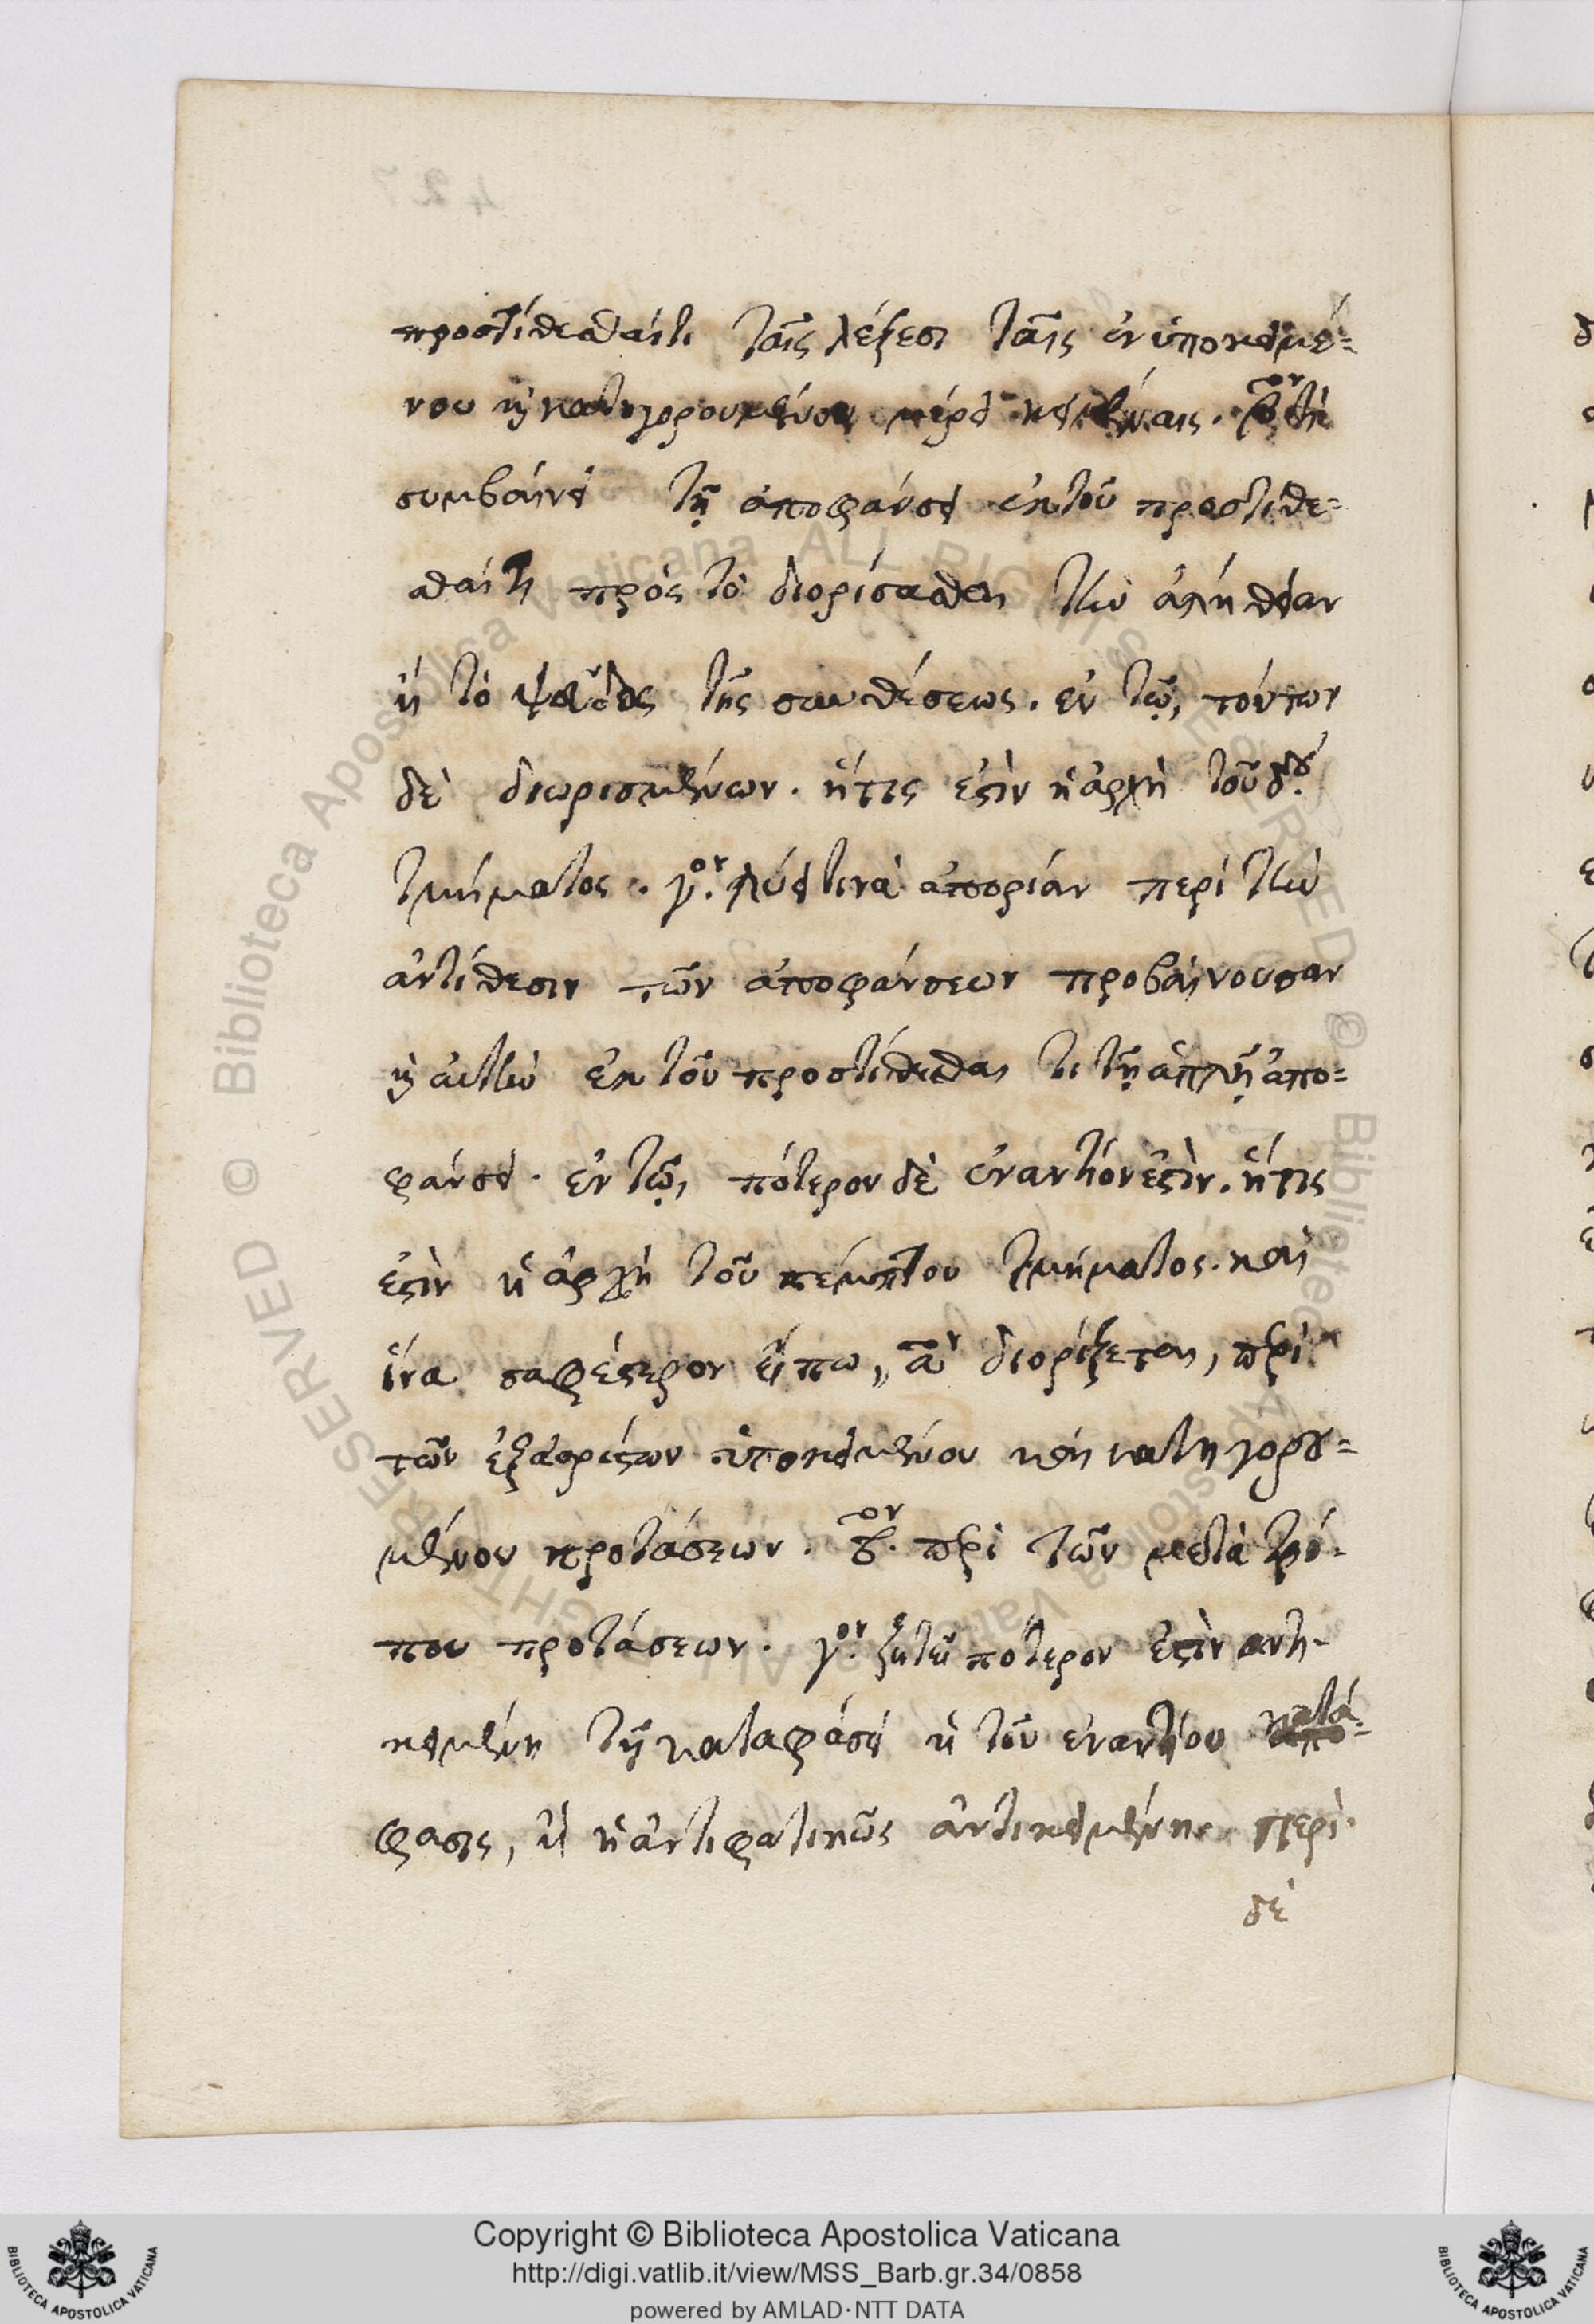 προστίθεσθαί τι ταῖς λέξεσι ταῖς ἐν ὑποκειμέ=
νου ἢ κατηγορουμένου μέρει κειμέναις. β͂ον τί
συμβαίνει τῇ ἀποφάνσει ἐκ τοῦ προστίθε=
σθαί τι πρὸς τὸ διορίσασθαι τὴν ἀλήθειαν
ἢ τὸ ψεῦδος τῆς συνθέσεως. ἐν τῷ, τούτων
δὲ διωρισμένων. ἥτις ἐστὶν ἡ ἀρχὴ τοῦ δ.ου
τμήματος. γ.ον λύει τινὰ ἀπορίαν περὶ τὴν
ἀντίθεσιν τῶν ἀποφάνσεων προβαίνουσαν
καὶ αὐτὴν ἐκ τοῦ προστίθεσθαι τι τῇ ἁπλῇ ἀπο=
φάνσει. ἐν τῷ, πότερον δὲ ἐναντίον ἐστὶν. ἥτις
ἐστὶν ἡ ἀρχὴ τοῦ πέμπτου τμήματος. καὶ
ἵνα σαφέστερον εἴπω, ᾶον διορίζεται, περὶ
τῶν ἐξ ἀορίστων ὑποκειμένου καὶ κατηγορου=
μένου προτάσεων. β.ον περὶ τῶν μετὰ τρό-
που προτάσεων. γ.ον ζητεῖ πότερον ἐστὶν αντι-
κειμένη τῇ καταφάσει ἡ τοῦ ἐναντίου κατά=
φασις, ἢ ἡ ἀντιφατικῶς ἀντικειμένη. περὶ
δὲ
Copyright © Biblioteca Apostolica Vaticana
http://digi.vatlib.it/view/MSS_Barb.gr.34/0858
powered by AMLAD·NTT DATA